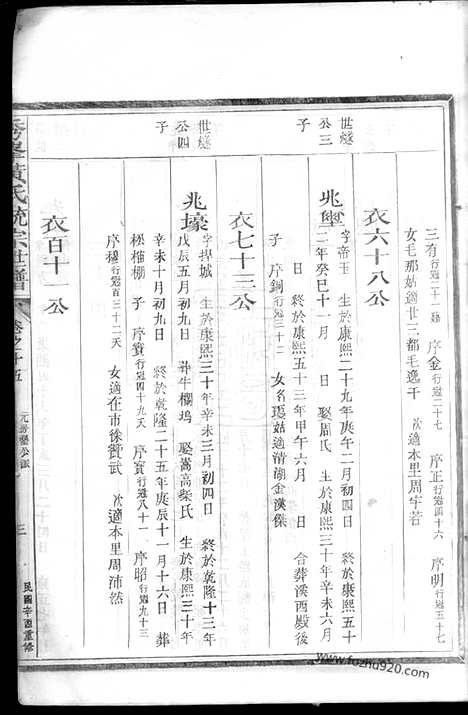 三有行冠二十一 序金行冠二十七 序正行冠四十六 序明行冠五十七
女毛那姑適廿三都毛逸千 次適本里周宇若
衣六十八公
世燧公三子
兆壆字帝玉 生於康熙二十九年庚午二月初四日 終於康熙五十
二年癸巳十一月 日 娶周氏 生於康熙三十年辛未六月
日 終於康熙五十三年甲午六月 日 合葬溪西殿後
子 序銅行冠三十二 女名瓊姑適清湖金漢傑
衣七十三公
世燧公四子
兆壕字捍城 生於康熙三十年辛未三月初四日 終於乾隆十三年
戊辰五月初九日 葬牛欄塢 娶嵩高柴氏 生於康熙三十年
辛未十月初九日 終於乾隆二十五年庚辰十一月十六日 葬
松椿棚 子 序賓行冠四十九夭 序實行冠八十一 序昭行冠九十三
序穆行冠百三十二夭 女適在市徐贊武 次適本里周沛然
衣百十一公
黃氏統宗世譜 卷之十五 三 民國辛酉重修
www.fozhu920.com